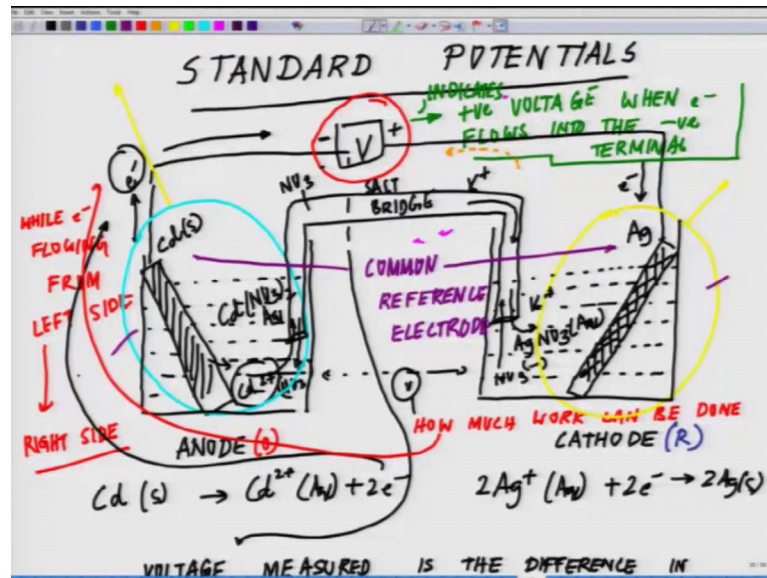 STANDARD POTENTIALS
INDICATES
+ve VOLTAGE WHEN e-
FLOWS INTO THE -ve
TERMINAL
- V +
e-
e-
NO3 SALT K+
BRIDGE
WHILE e-
FLOWING
FROM
LEFT SIDE
RIGHT SIDE
Cd(s)
Ag
COMMON
REFERENCE
ELECTRODE
Cd(NO3)2
K+
AgNO3(Aq)
NO3
Cd2+
V
HOW MUCH WORK CAN BE DONE
ANODE (O)
CATHODE (R)
Cd (s) → Cd2+ (Aq) + 2e-
2Ag+ (Aq) + 2e- → 2Ag(s)
VOLTAGE MEASURED IS THE DIFFERENCE IN